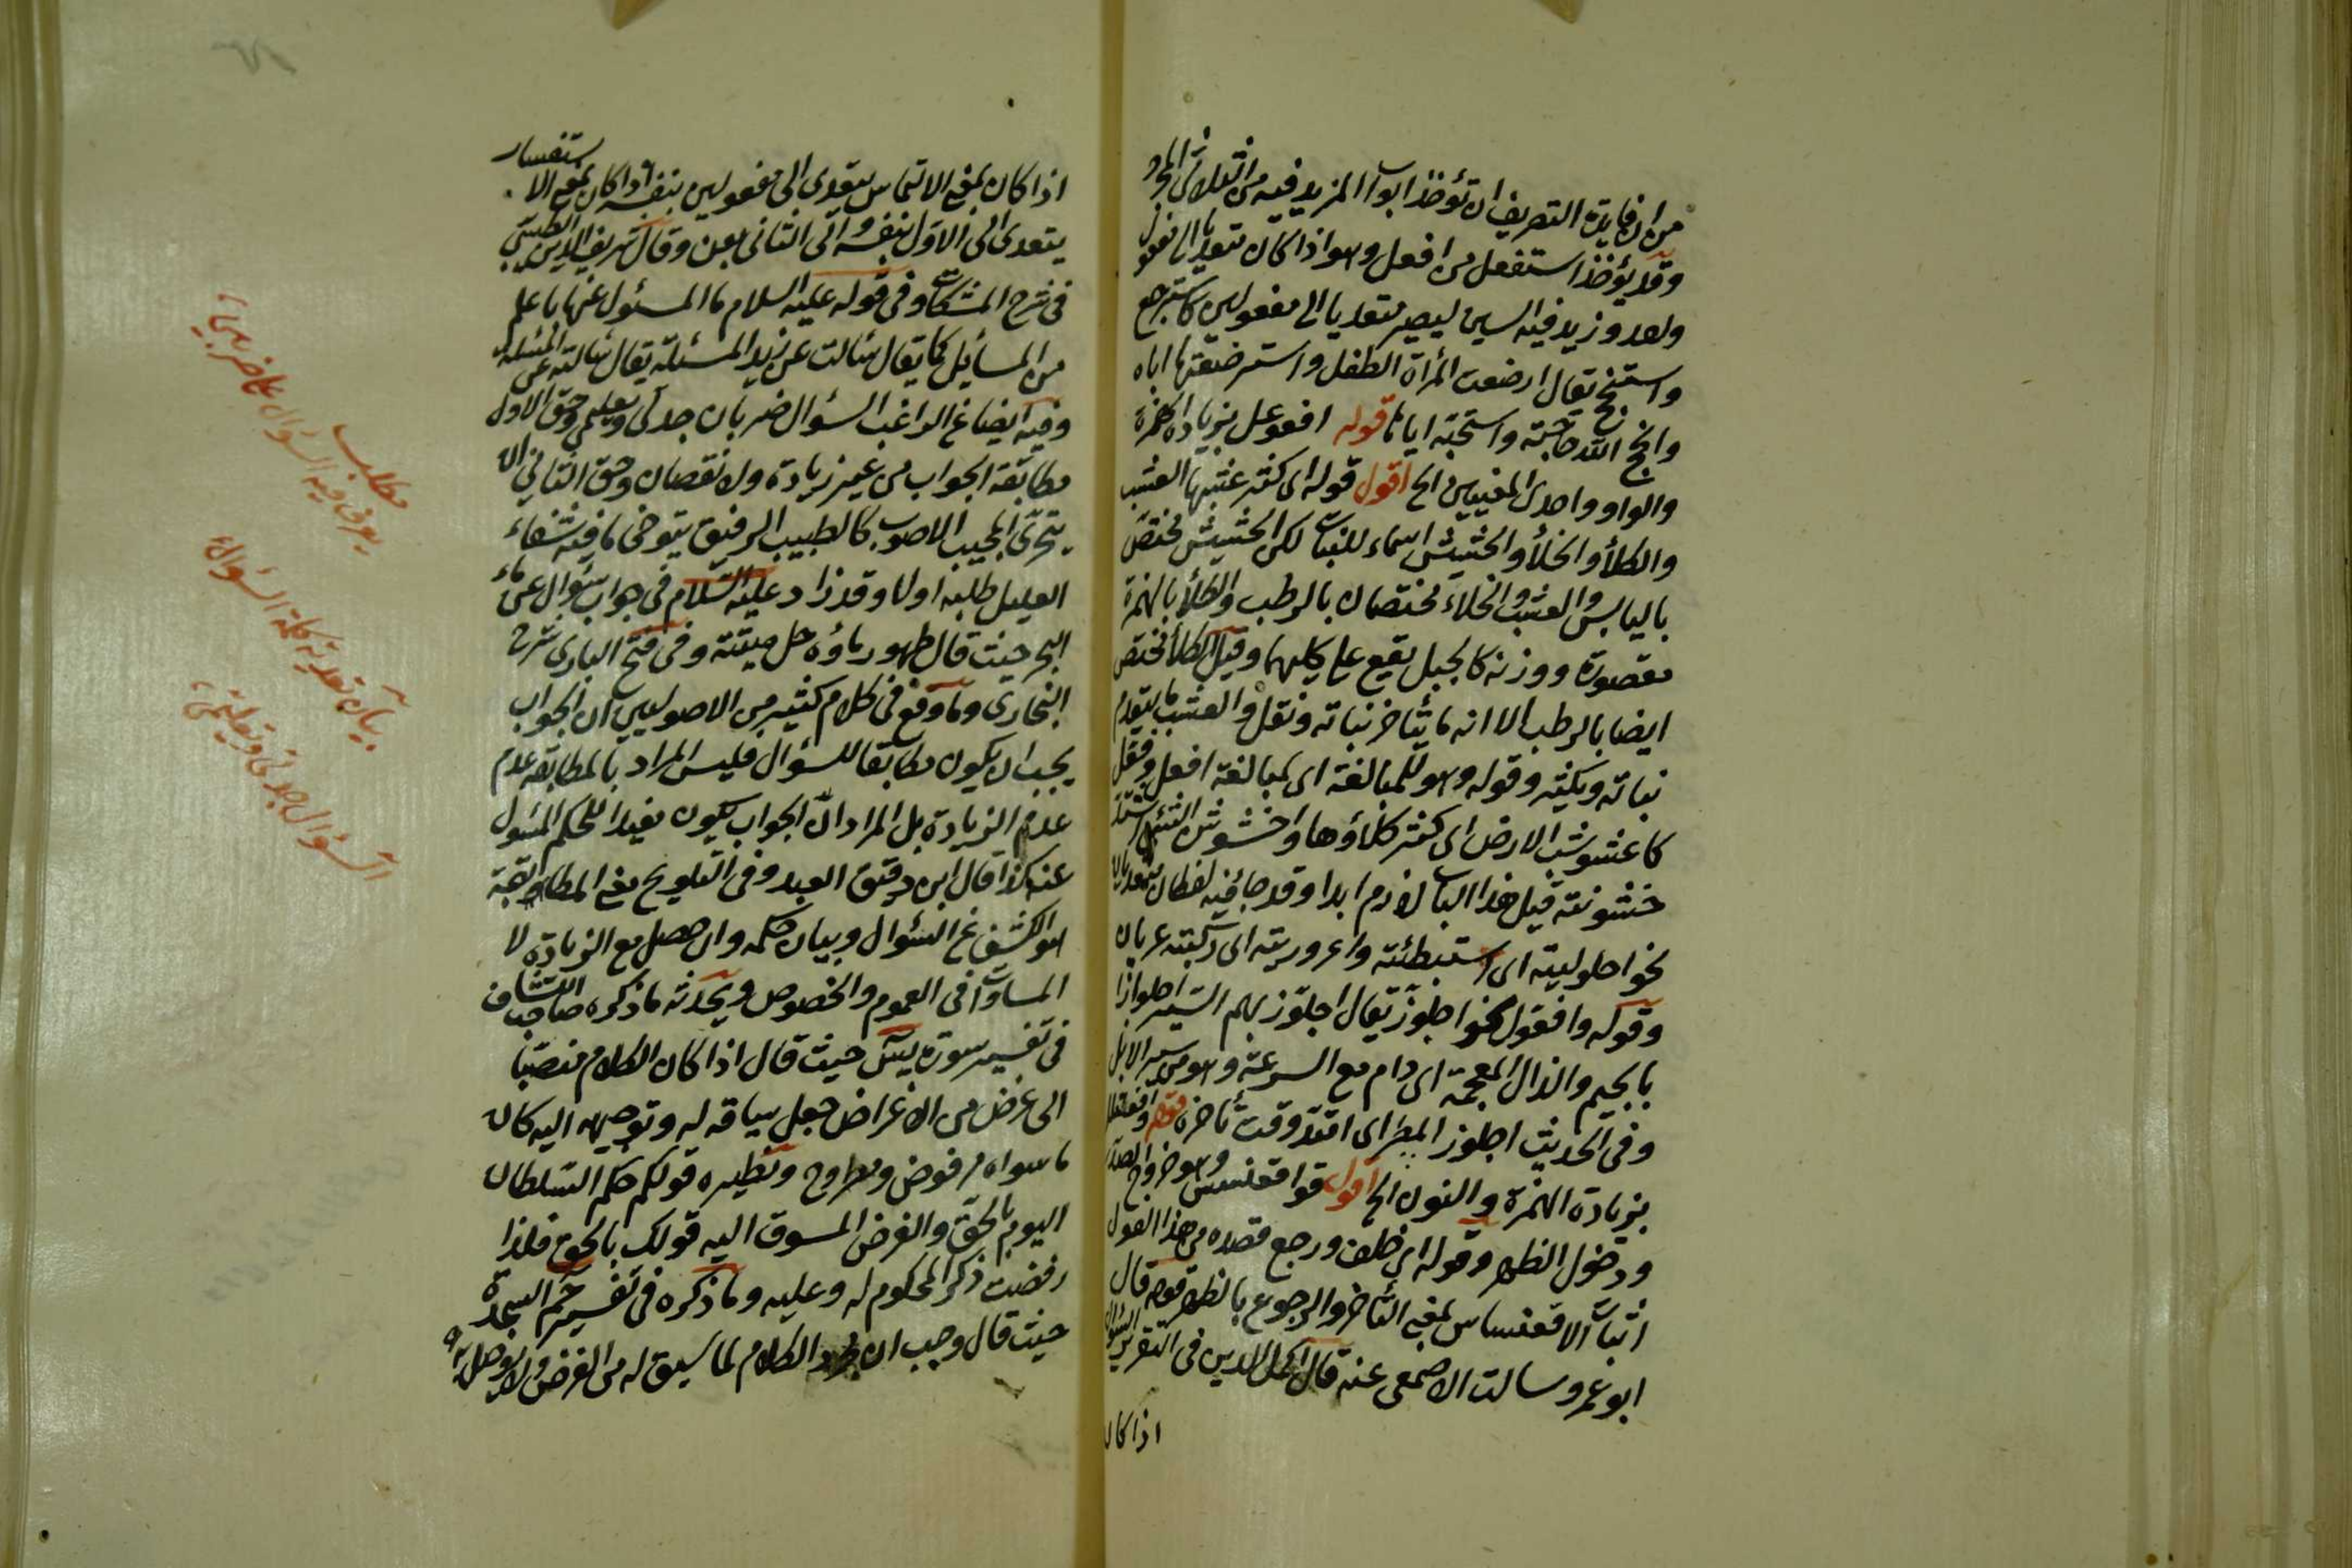 من ان فايدة التصريف ان تؤخذ ابواب المزيد فيه من الثلاثي المجرد
وقد يؤخذ استفعل من افعل وهو اذا كان متعديا الى مفعول
واحد وزيد فيه السين ليصير متعديا الى مفعولين كاسترجع
واستنجح يقال ارضعت المرأة الطفل واسترضعتها اياه
وانجح الله حاجته واستنجحته اياها قوله افعوعل بزيادة الهمزة
والواو واحدى العينين الخ اقول قوله اى كثر عشبها العشب
والكلأ والخلأ والحشيش اسماء للنبات لكن الحشيش مختص
باليابس والعشب والخلاء مختصان بالرطب والكلأ بالهمزة
مقصورة ووزنه كالجبل يقع على كليهما وقيل الكلأ مختص
ايضا بالرطب الا انه ما يتأخر نباته ونقل والعشب ما يتقدم
نباته ويكثر وقوله وهو للمبالغة اى لمبالغة افعل وفعل
كاعشوشب الارض اى كثر كلاؤها واخشوشن الشئ اشتد
خشونته قيل هذا الباب لازم ابدا وقد جا فيه لفظان متعديان
نحو احلوليته اى استبطئته واعروريته اى ركبته عريان
وقوله وافعول نحو اجلوز يقال اجلوز بهم السير اجلواذا
بالجيم والذال المعجمة اى دام مع السرعة وهو من سير الابل
وفى الحديث اجلوز المطر اى امتد وقت تأخره قوله وافعنلل
بزيادة الهمزة والنون الخ اقول قوا قعنسس وهو خروج الصدر
ودخول الظهر وقوله اى خلف ورجع قصده من هذا القول
اثبات الاقعنساس بمعنى التأخر والرجوع بالظهر قوله قال
ابو عمرو سالت الاصمعى عنه قال اكمل الدين فى التقرير السؤال
اذا كان
اذا كان بمعنى الالتماس يتعدى الى مفعولين بنفسه واذا كان بمعنى الاستفسار
يتعدى الى الاول بنفسه والى الثانى بعن وقال شريف الدين الطيبى
فى شرح المشكاة وفى قوله عليه السلام ما المسئول عنها باعلم
من السائل كما يقال سالت عن زيد المسئلة يقال سالته عن المسئلة
وفيه ايضا عن الراغب السؤال ضربان جدلى وتعليمى وحق الاول
مطابقة الجواب من غير زيادة ولا نقصان وحق الثانى ان
يتحرى المجيب الاصوب كالطبيب الرفيق يتوخى ما فيه شفاء
العليل طلبه اولا وقد زاد عليه السلام فى جواب سؤال عن ماء
البحر حيث قال طهور ماؤه حل ميتته وفى فتح البارى شرح
البخارى وما وقع فى كلام كثير من الاصوليين ان الجواب
يجب ان يكون مطابقا للسؤال فليس المراد بالمطابقة عدم
عدم الزيادة بل المراد ان الجواب يكون مفيدا للحكم المسئول
عنه كذا قال ابن دقيق العيد وفى التلويح معنى المطابقة
هو الكشف عن السؤال وبيان حكمه وان حصل مع الزيادة لا
المساوات فى العموم والخصوص ويخدشه ما ذكره صاحب الكشاف
فى تفسير سورة يس حيث قال اذا كان الكلام منصبا
الى غرض من الاغراض جعل سياقه له وتوجهه اليه كان
ما سواه مرفوض ومطروح ونظيره قولكم حكم السلطان
اليوم بالحق والغرض المسوق اليه قولك بالحق فلذا
رفضت ذكر المحكوم له وعليه وما ذكره فى تفسير حم السجدة
حيث قال وجب ان يجرد الكلام لما سيق له من الغرض ولا يوصل به
مطلب
يعرف فيه السؤال
بيان تعدية كلمة السؤال
السؤال جدلى وتعليمى